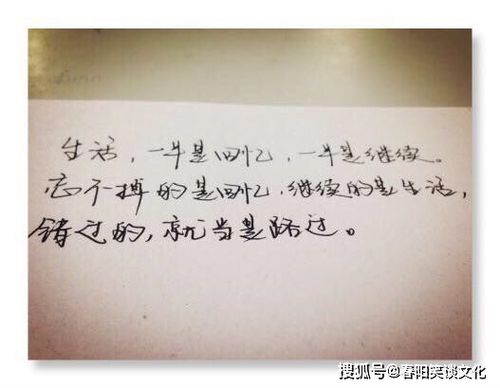 生活，一半是回忆，一半是继续。
忘不掉的是回忆，继续的是生活，
错过的，就当是路过。
搜狐号@春阳笑谈文化